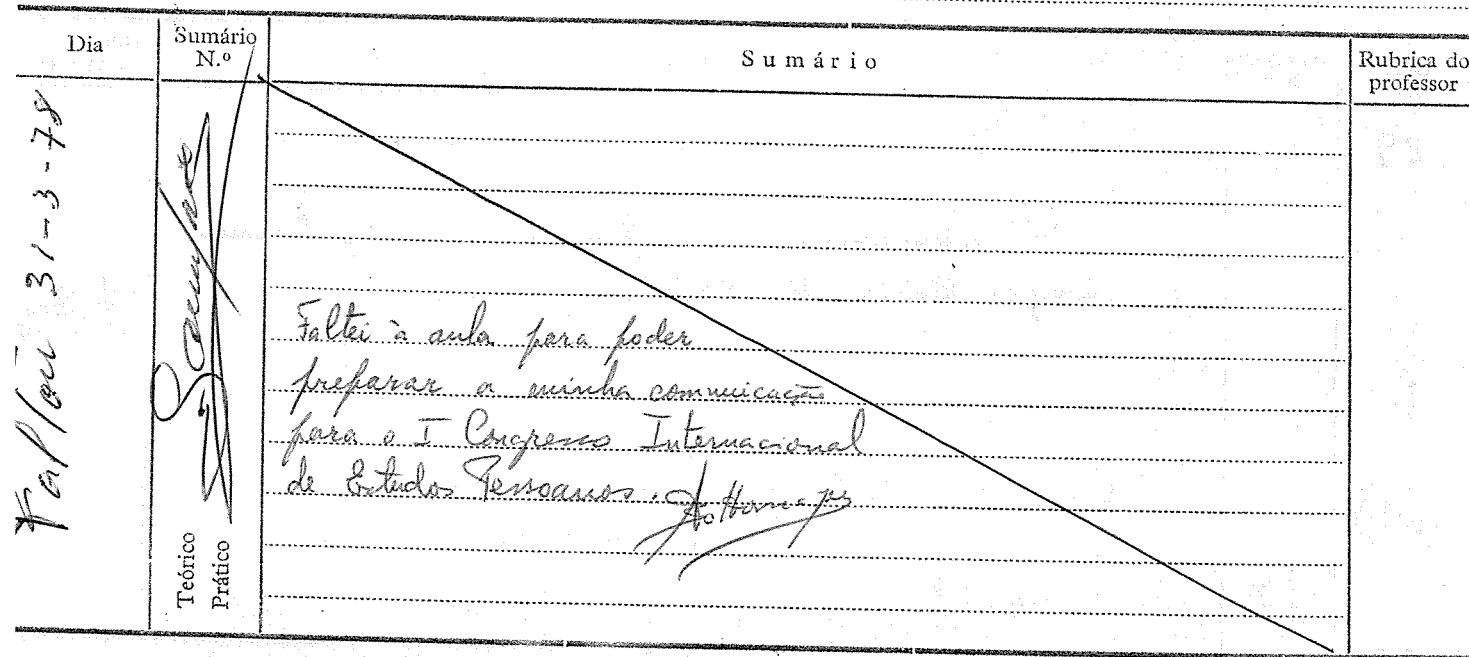 Dia
Sumário
N.º
Sumário
Rubrica do
professor
31-3-78
Teórico
Prático
Faltei à aula para poder
preparar a minha comunicação
para o I Congresso Internacional
de Estudos Pessoanos.